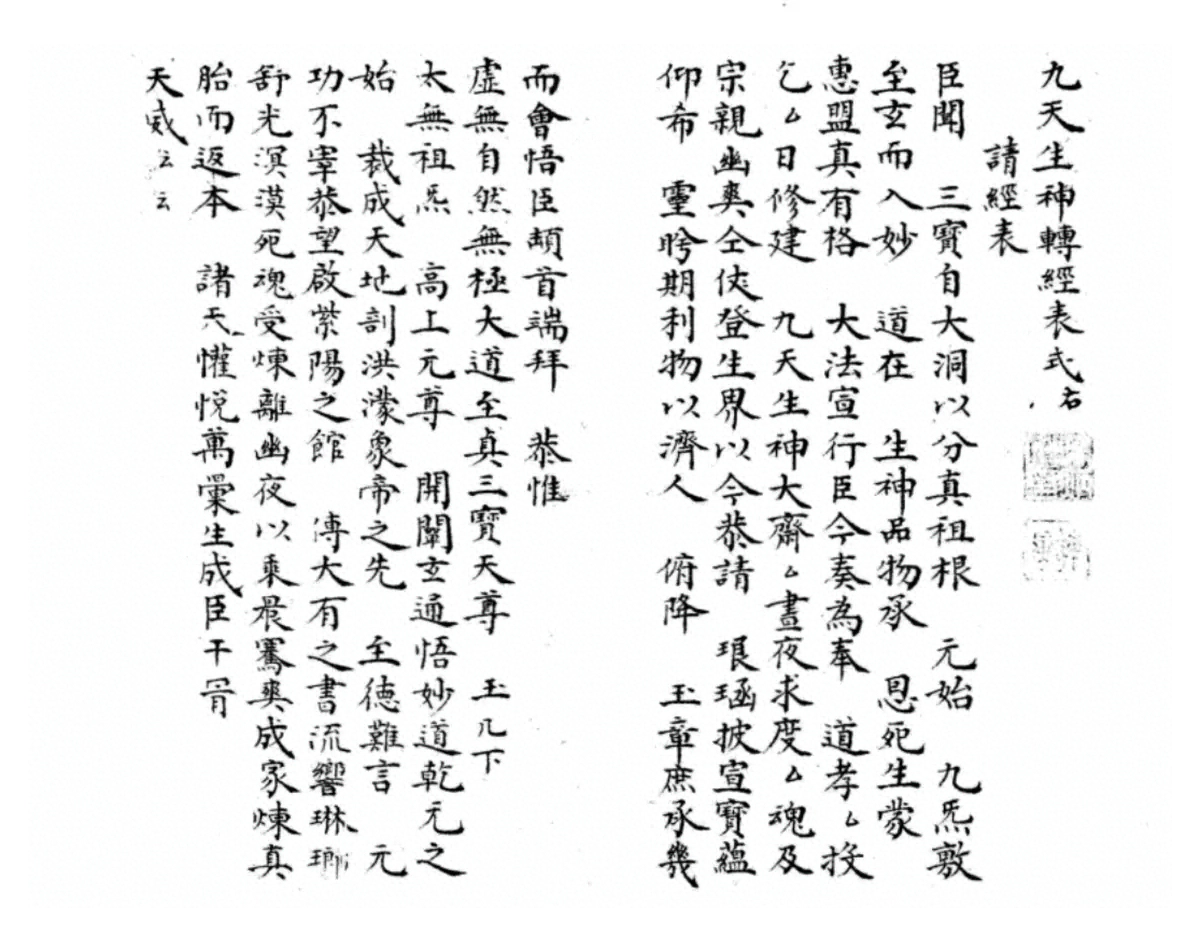 九天生神轉經表式 右
請經表
臣聞 三寶自大洞以分真祖根 元始 九炁敷
至玄而入妙 道在 生神品物承 恩死生蒙
惠盟真有格 大法宣行臣今奏為奉 道孝厶投
乞厶日修建 九天生神大齋厶晝夜求度厶魂及
宗親幽爽仝俟登生界以今恭請 琅函披宣寶蘊
仰希 靈盻期利物以濟人 俯降 玉章庶承幾
而會悟臣頫首端拜 恭惟
虛無自然無極大道至真三寶天尊 玉几下
太無祖炁 高上元尊 開闡玄通悟妙道乾元之
始 裁成天地剖洪濛象帝之先 至德難言 元
功不宰恭望啟紫陽之館 傳大有之書流響琳瑯
舒光溟漠死魂受煉離幽夜以乘晨騫爽成家煉真
胎而返本 諸天懽悅萬彙生成臣干冐
天威云云